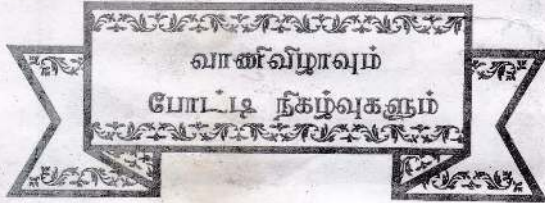 வாணிவிழாவும்
போட்டி நிகழ்வுகளும்